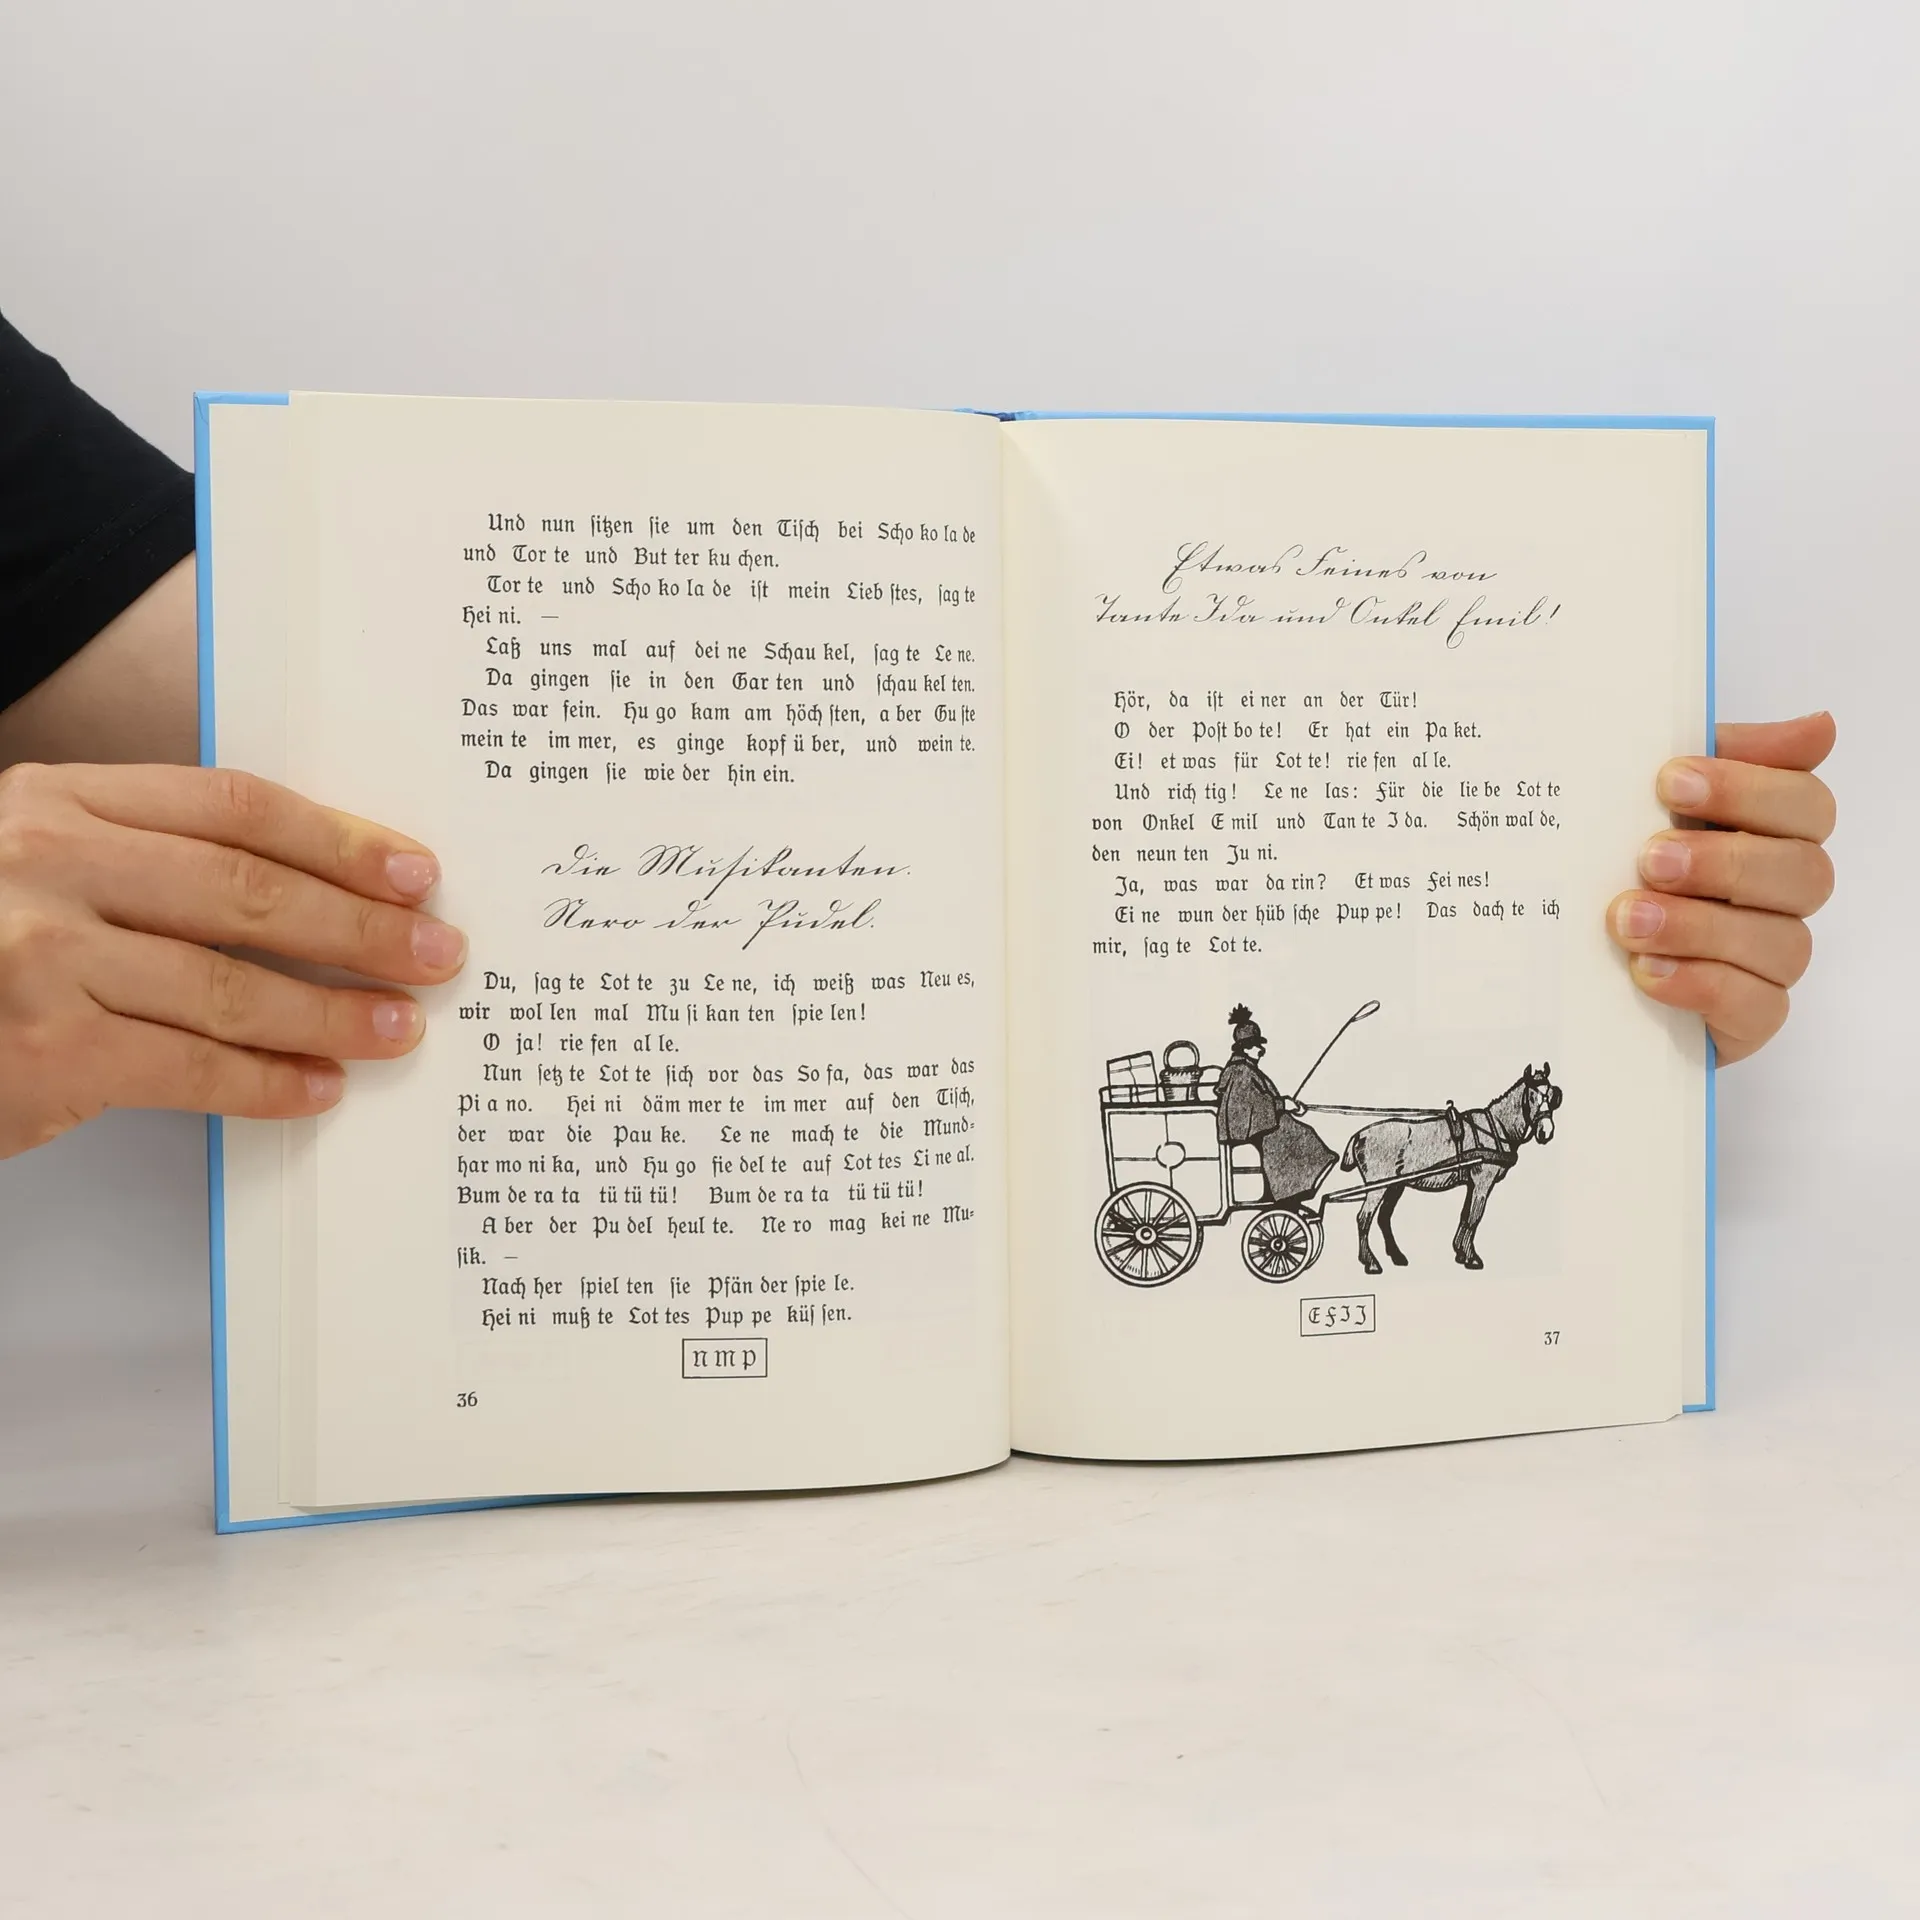 Und nun ſitzen ſie um den Tiſch bei Scho ko la de
und Tor te und But ter ku chen.
Tor te und Scho ko la de iſt mein Lieb ſtes, ſag te
Hei ni. —
Laß uns mal auf dei ne Schau kel, ſag te Le ne.
Da gingen ſie in den Gar ten und ſchau kel ten.
Das war fein. Hu go kam am höch ſten, a ber Gu ſte
mein te im mer, es ginge kopf ü ber, und wein te.
Da gingen ſie wie der hin ein.
Die Muſikanten.
Nero der Pudel.
Du, ſag te Lot te zu Le ne, ich weiß was Neu es,
wir wol len mal Mu ſi kan ten ſpie len!
O ja! rie fen al le.
Nun ſetz te Lot te ſich vor das So fa, das war das
Pi a no. Hei ni däm mer te im mer auf den Tiſch,
der war die Pau ke. Le ne mach te die Mund⸗
har mo ni ka, und Hu go fie del te auf Lot tes Li ne al.
Bum de ra ta tü tü tü! Bum de ra ta tü tü tü!
A ber der Pu del heul te. Ne ro mag kei ne Mu⸗
ſik. —
Nach her ſpiel ten ſie Pfän der ſpie le.
Hei ni muß te Lot tes Pup pe küſ ſen.
n m p
36
Etwas Feines von
Tante Ida und Onkel Emil!
Hör, da iſt ei ner an der Tür!
O der Poſt bo te! Er hat ein Pa ket.
Ei! et was für Lot te! rie fen al le.
Und rich tig! Le ne las: Für die lie be Lot te
von Onkel E mil und Tan te I da. Schön wal de,
den neun ten Ju ni.
Ja, was war da rin? Et was Fei nes!
Ei ne wun der hüb ſche Pup pe! Das dach te ich
mir, ſag te Lot te.
E F I J
37